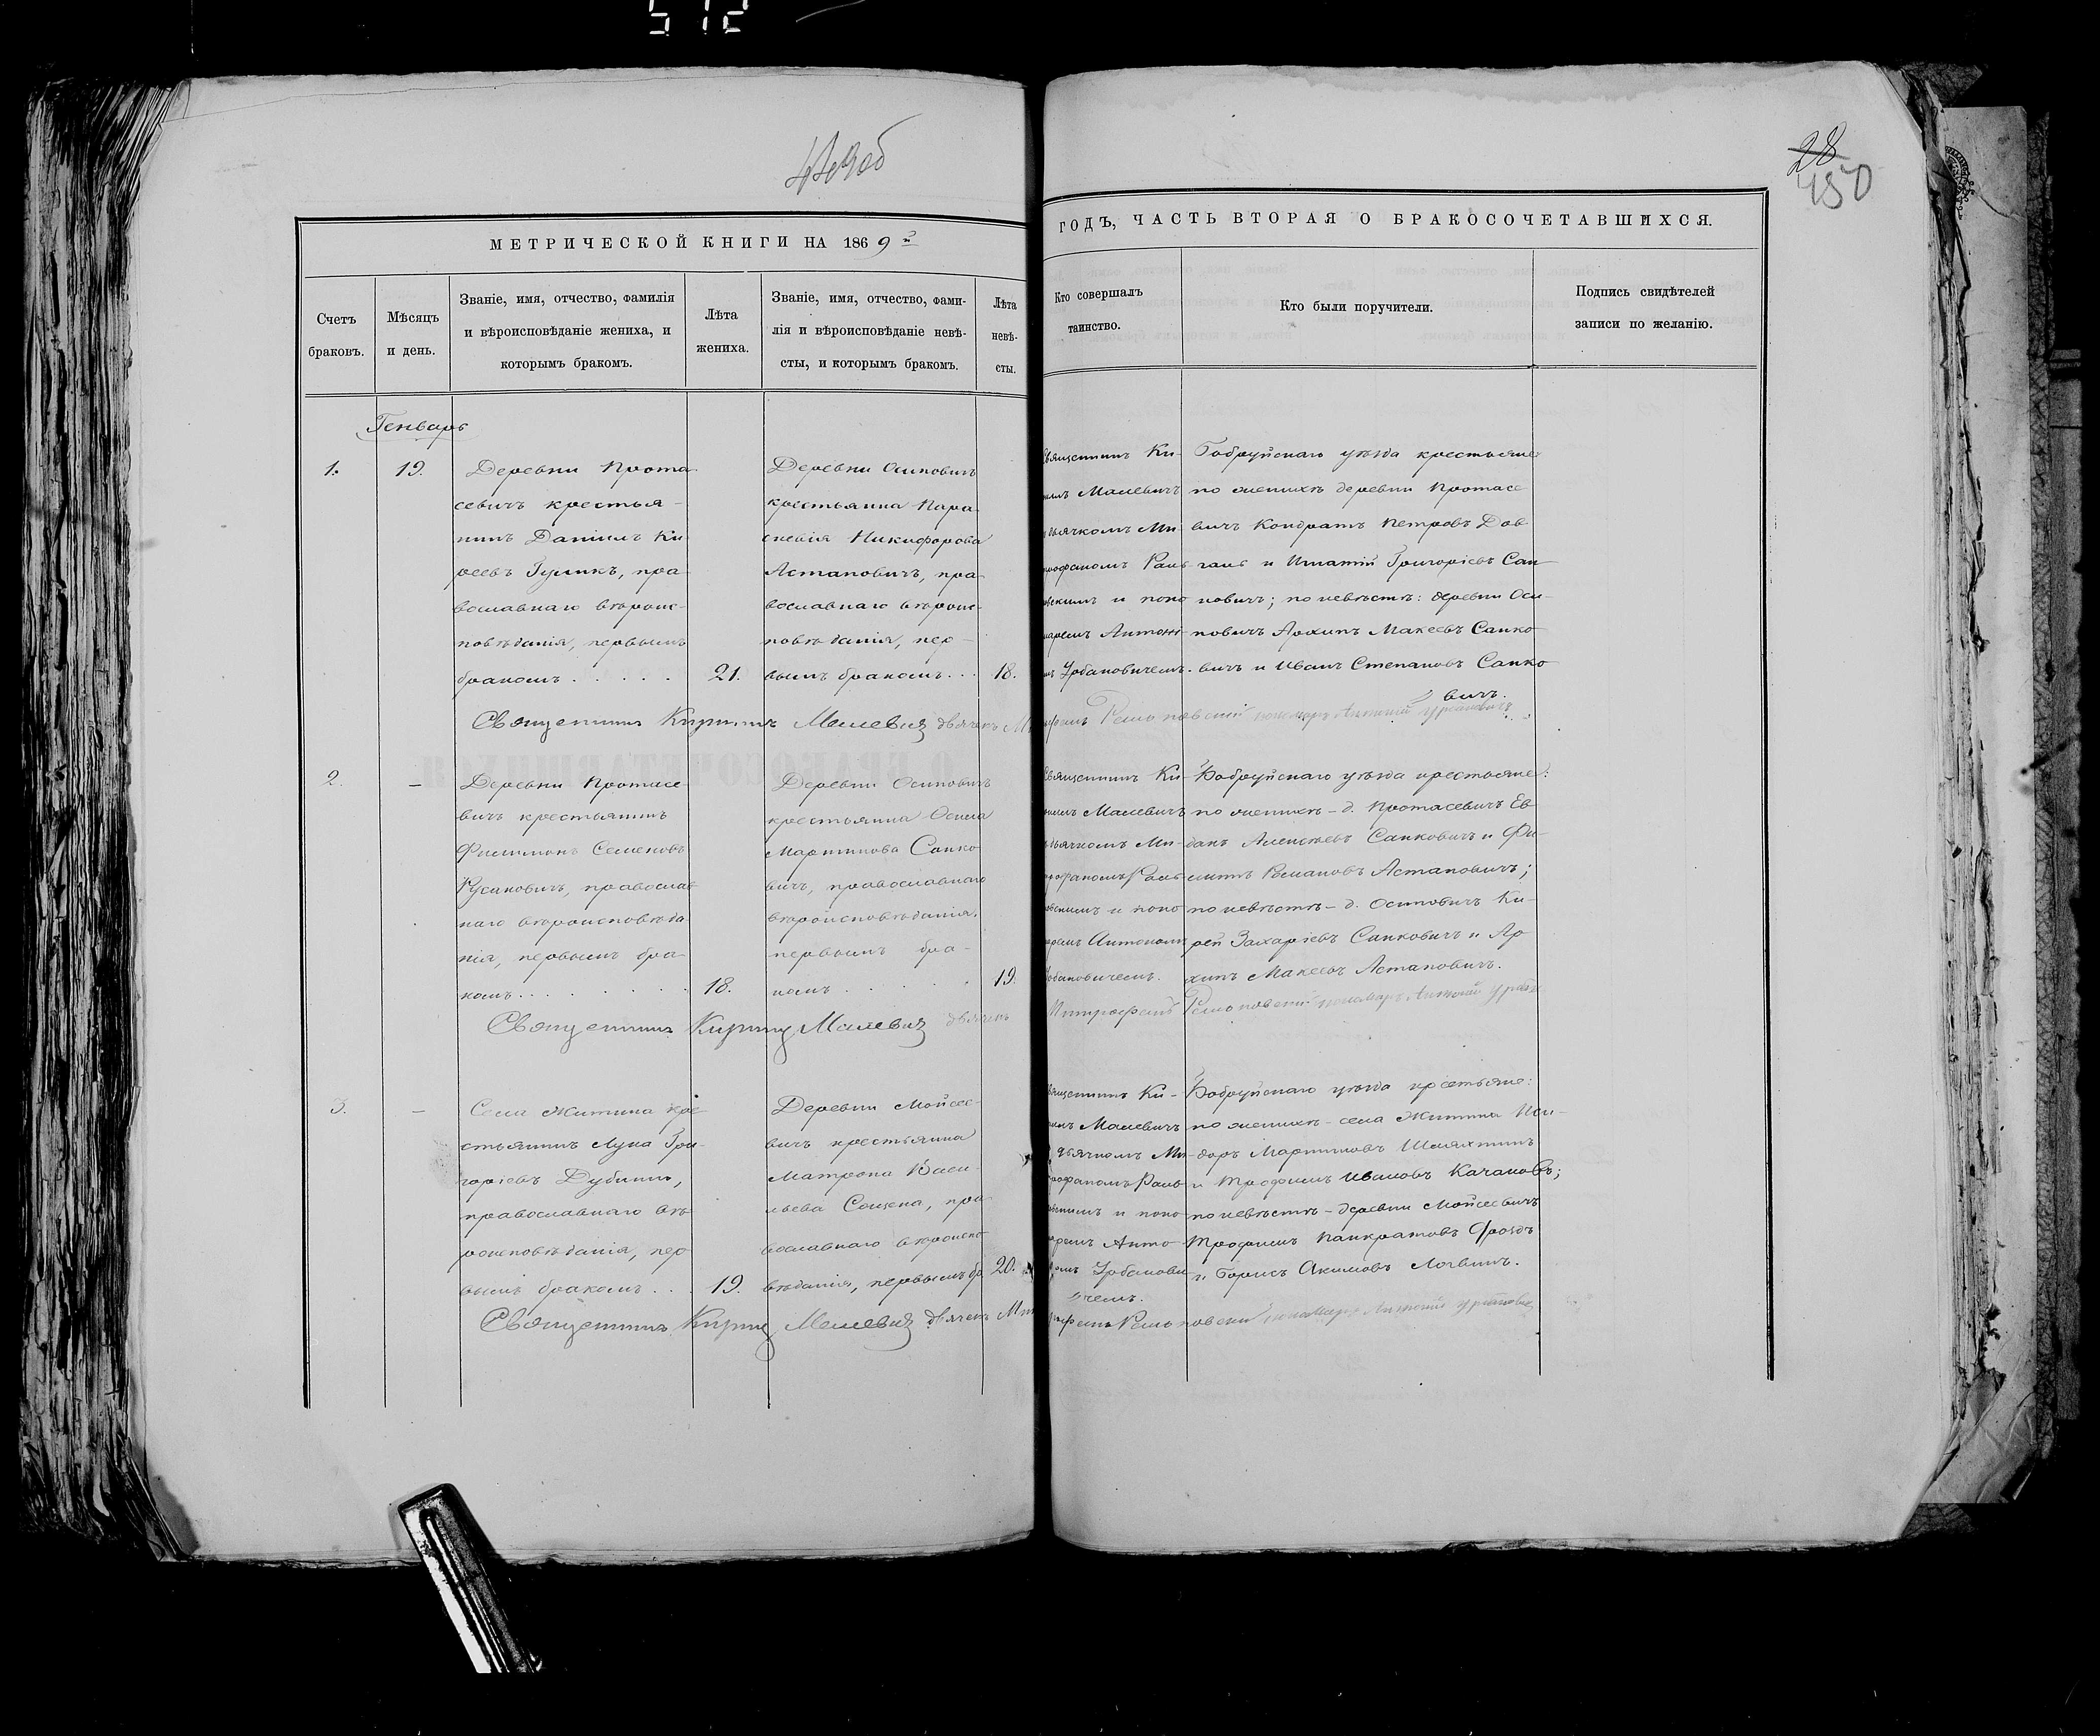 512
449об
28
450
МЕТРИЧЕСКОЙ КНИГИ НА 1869й
ГОДЪ, ЧАСТЬ ВТОРАЯ О БРАКОСОЧЕТАВШИХСЯ.
Счетъ
браковъ.
Мѣсяцъ
и день.
Званіе, имя, отчество, фамилія
и вѣроисповѣданіе жениха, и
которымъ бракомъ.
Лѣта
жениха.
Званіе, имя, отчество, фами-
лія и вѣроисповѣданіе невѣ-
сты, и которымъ бракомъ.
Лѣта
невѣ-
сты.
Кто совершалъ
таинство.
Кто были поручители.
Подпись свидѣтелей
записи по желанію.
Генварь
1.
19.
Деревни Прота
севичъ крестья-
нинъ Даніилъ Ки
реевъ Гуликъ, пра
вославнаго вѣроис-
повѣданія, первымъ
бракомъ
21.
Деревни Осиповичъ
крестьянка Пара
скевія Никифорова
Астаповичъ, пра-
вославнаго вѣроис-
повѣданія, пер-
вымъ бракомъ
18.
Священникъ Ки-
Малевичъ
дьячкомъ Ми-
трофаномъ
и поно
Антоні
Урбановичемъ.
Бобруйскаго уѣзда крестьяне
по женихѣ деревни Протасе
вичъ Кондратъ Петровъ Дов
галь и Игнатій Григоріевъ Сап
ковичъ; по невѣстѣ: деревни Оси-
повичъ Архипъ Макеевъ Сапко
вичъ и Иванъ Степановъ Сапко
вичъ.
Священникъ Кириллъ Малевичъ дьячекъ
пономарь Антоній Урбановичъ
2.
—
Деревни Протасе
вичъ крестьянинъ
Филимонъ Семеновъ
Русаковичъ, православ
наго вѣроисповѣда
нія, первымъ бра-
комъ
18.
Деревни Осиповичъ
крестьянка
Мартинова Сапко
вичъ, православнаго
вѣроисповѣданія,
первымъ бра-
комъ
19.
Священникъ Ки-
Малевичъ
дьячкомъ Ми-
и поно
Антоніемъ
Урбановичемъ.
Бобруйскаго уѣзда крестьяне:
по женихѣ – д. Протасевичъ Ев
данъ Алексѣевъ Сапковичъ и Фи-
липъ Романовъ Астаповичъ;
по невѣстѣ – д. Осиповичъ Ки-
рей Захаріевъ Сапковичъ и Ар
хипъ Макеевъ Астаповичъ.
Священникъ Кириллъ Малевичъ дьячекъ
Митрофанъ пономарь Антоній
3.
—
Села Житина кре
стьянинъ Лука Гри-
горіевъ Дубина,
православнаго вѣ-
роисповѣданія, пер
вымъ бракомъ
19.
Деревни Мойсее-
вичъ крестьянка
Матрона Васи-
льева Сощека, пра
вославнаго вѣроиспо
вѣданія, первымъ бр
20.
Священникъ Ки-
Малевичъ
дьячкомъ Ми-
и поно
Анто
Урбанови
чемъ.
Бобруйскаго уѣзда крестьяне:
по женихѣ – села Житина Иси-
доръ Мартиновъ Шляхтинъ
и Трофимъ Ивановъ Качановъ;
по невѣстѣ – деревни Мойсеевичъ
Трофимъ Панкратовъ Фроздъ
и Борисъ Акимовъ Логвинъ.
Священникъ Кириллъ Малевичъ дьячекъ
пономарь Антоній